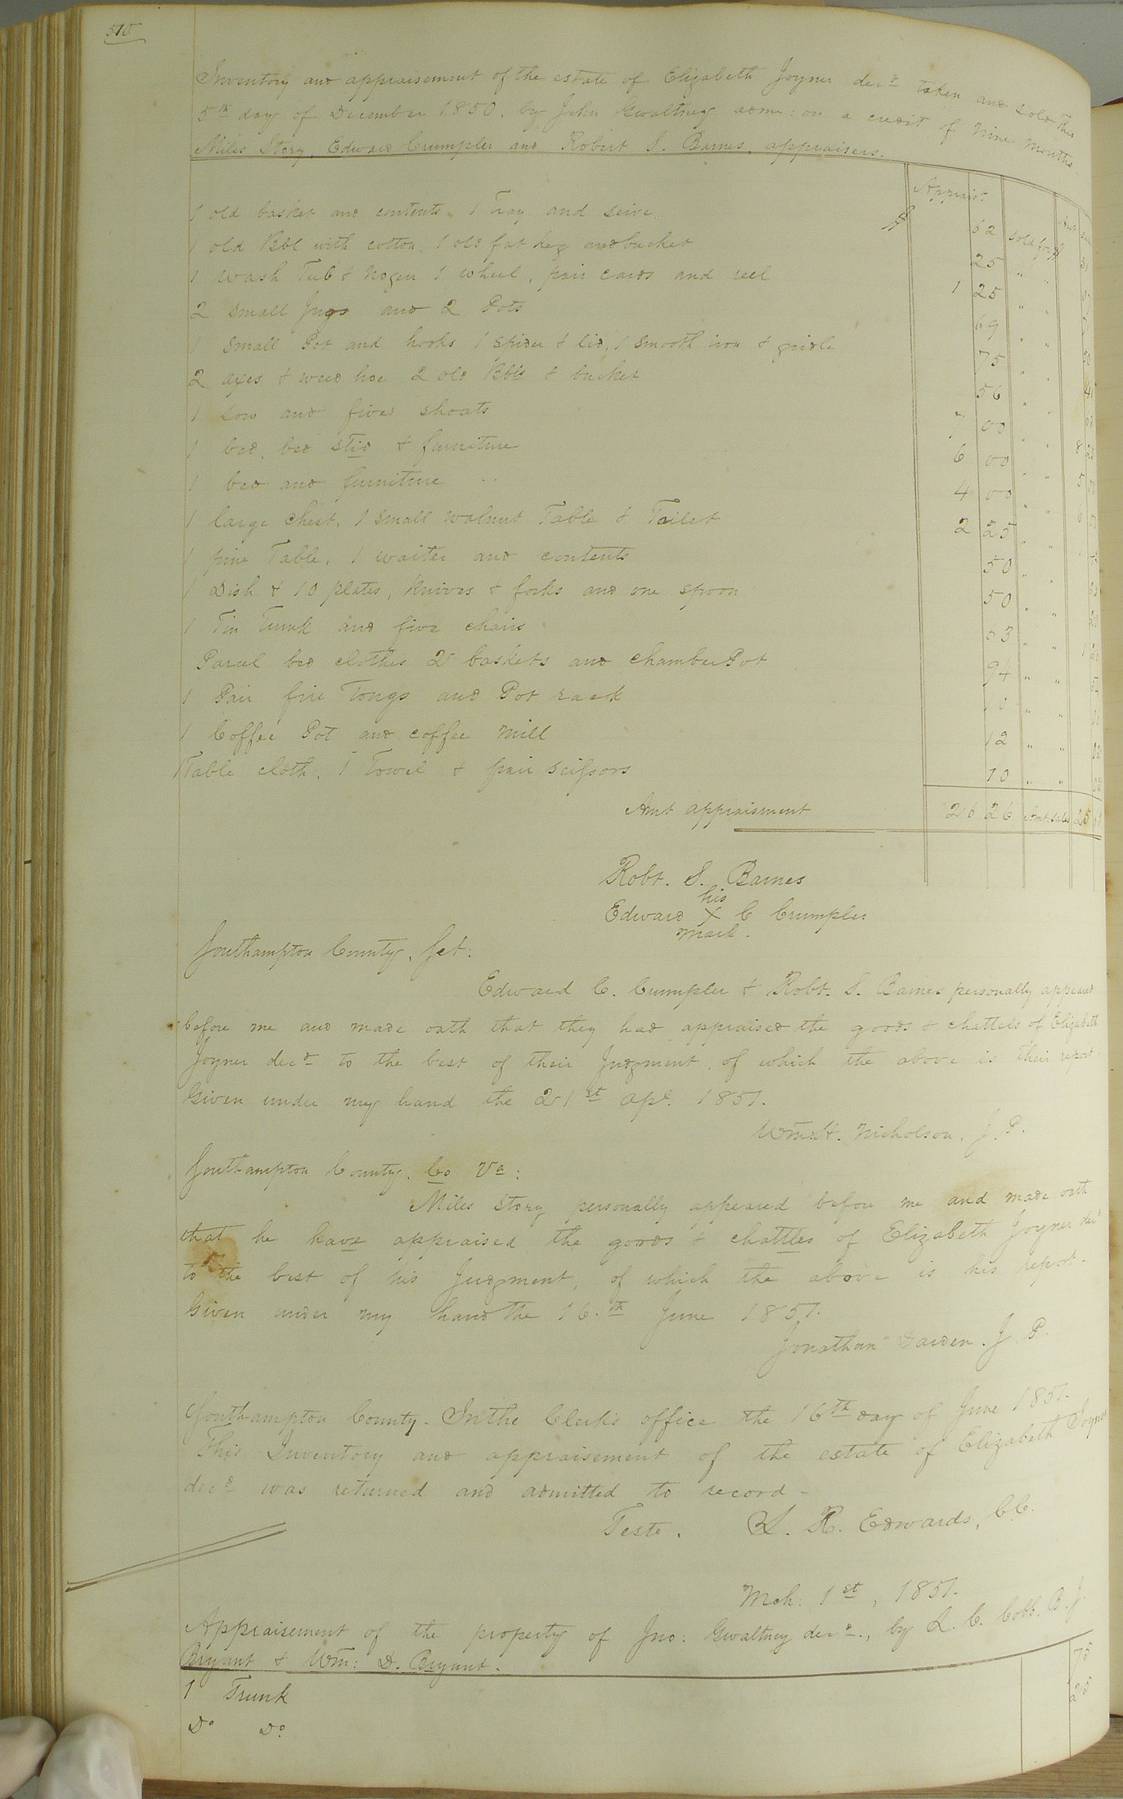 Inventory and appraisement of the estate of Elizabeth Joyner decd taken and sold this
5th day of December 1850. by John Gwaltney admr: on a credit of Nine months
Miles Story, Edward Crumpler and Robert S. Barnes. appraisers.
Appraist
1 old basket and contents. 1 Tray and seive $ 62 sold for $
1 old Bbl with cotton, 1 old fat keg and bucket 25 " "
1 wash Tub & 1 wheel, pair cards and reel 1 25 " "
2 small Jugs and 2 Pots 69 " "
1 small Pot and hooks 1 spider & lid, 1 smooth iron & 75 " "
2 axes & weed hoe 2 old Bbls & bucket 56 " "
1 sow and five shoats 7 00 " "
1 bed, bed stid & furniture 6 00 " "
1 bed and furniture 4 00 " "
1 large chest, 1 small walnut Table & Toilet 2 25 " "
1 pine Table, 1 waiter and contents 50 " "
1 Dish & 10 plates, knives & forks and one spoon 50 " "
1 Tin Trunk and five chairs 63 " "
Parcel bed clothes 2 baskets and chamber Pot 94 " "
1 Pair fire Tongs and Pot rack 10 " "
1 Coffee Pot and coffee mill 12 " "
1 Table cloth, 1 Towel & pair scissors 10 " "
Amt appraisment 26 26 Amt sales 25
Robt. S. Barnes
his
Edward X C Crumpler
mark.
Southampton County, Sct:
Edward C. Crumpler & Robt. S. Barnes personally appeared
before me and made oath that they had appraised the goods & chattels of Elizabeth
Joyner decd to the best of their Judgment, of which the above is their report
Given under my hand the 21st Apl. 1851.
Wm. H. Nicholson. J. P.
Southampton County. Co Va:
Miles Story personally appeared before me and made oath
that he have appraised the goods & chattles of Elizabeth Joyner decd
to the best of his Judgment, of which the above is his report.
Given under my hand the 16.th June 1851.
Jonathan Darden. J. P.
Southampton County. In the Clerk's office the 16th day of June 1851.
This Inventory and appraisement of the estate of Elizabeth Joyner
decd was returned and admitted to record -
Teste. L. R. Edwards, C.C.
Mch: 1st, 1851.
Appraisement of the property of Jno: Gwaltney decd., by L. C. Cobb, B. J.
Bryant & Wm: D. Bryant.
1 Trunk 75
Do Do 25